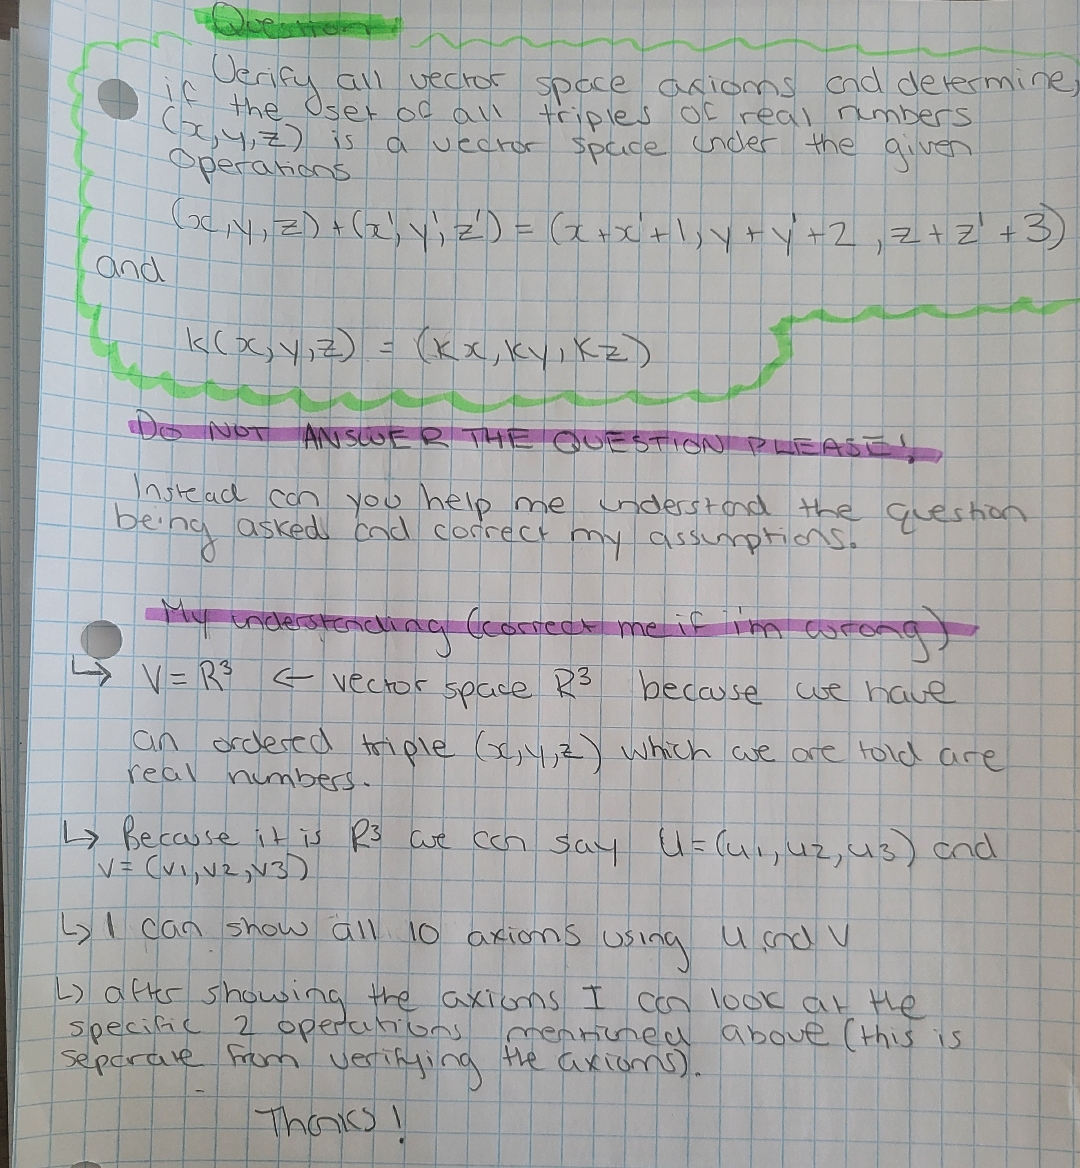 Question
Verify all vector space axioms and determine,
if the set of all triples of real numbers
(x,y,z) is a vector space under the given
operations
(x,y,z)+(x',y',z') = (x+x'+1, y+y'+2, z+z'+3)
and
k(x,y,z) = (kx,ky,kz)
DO NOT ANSWER THE QUESTION PLEASE!
Instead can you help me understand the question
being asked and correct my assumptions.
My understanding (correct me if i'm wrong)
↳ V=R³ ← vector space R³ because we have
an ordered triple (x,y,z) which we are told are
real numbers.
↳ Because it is R³ we can say U=(u1,u2,u3) and
V=(v1,v2,v3)
↳ I can show all 10 axioms using U and V
↳ after showing the axioms I can look at the
specific 2 operations mentioned above (this is
separate from verifying the axioms).
Thanks!